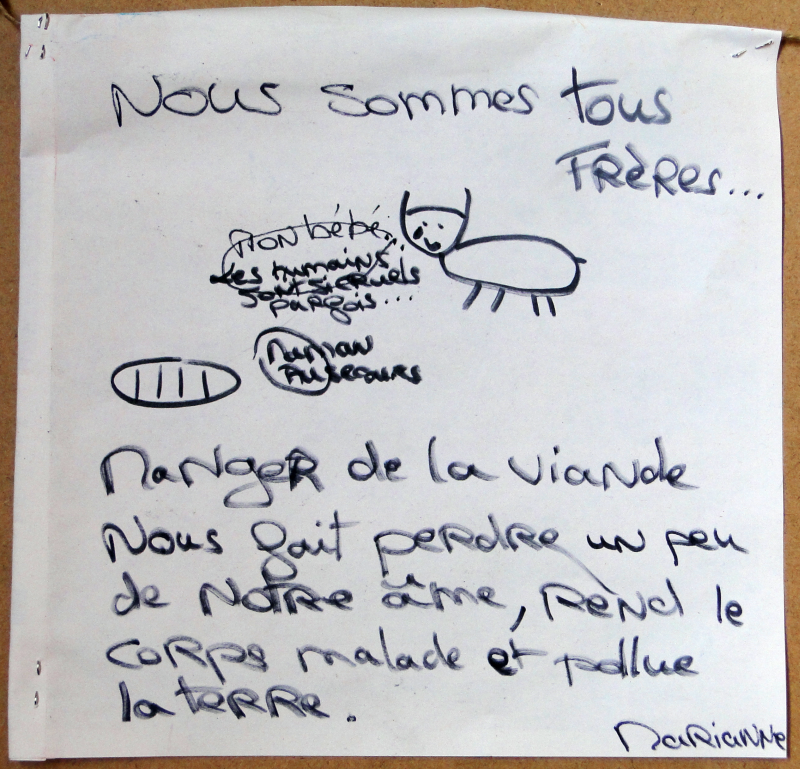 Nous sommes tous
Frères...
Mon bébé.
Les humains
sont si cruels
parfois...
Maman
Au secours
Manger de la viande
Nous fait perdre un peu
de Notre âme, Rend le
corps malade et pollue
la terre.
Marianne